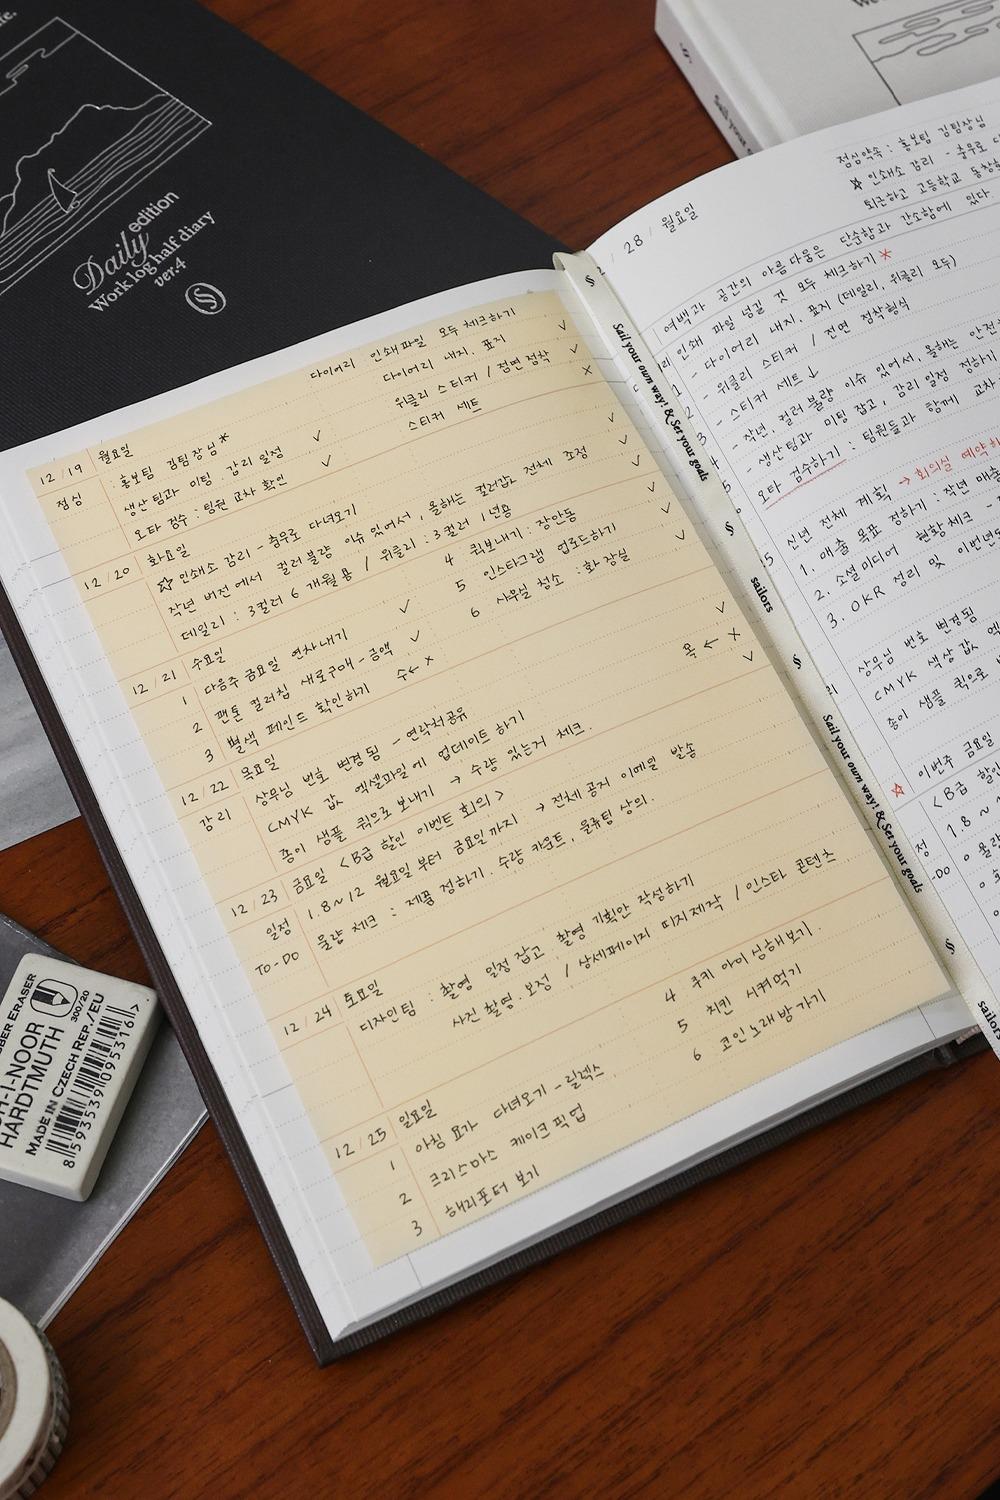 Daily edition
Work log half diary
ver.4
Sail your
We
BER ERASER
H-I-NOOR
HARDTMUTH
300/20
MADE IN CZECH REP./EU
8 593539 095316
Sail your own way! & Set your goals
sailors
Sail your own way! & Set your goals
sailors
12 / 19 월요일
점심 : 홍보팀 김팀장님*
생산팀과 미팅 감리 일정 ✓
오타 검수 : 팀원 교차 확인 ✓
다이어리 인쇄파일 모두 체크하기
다이어리 내지, 표지 ✓
위클리 스티커 / 점면 접착 ✓
스티커 세트 ×
12 / 20 화요일
☆ 인쇄소 감리 - 충무로 다녀오기 ✓
작년 버전에서 컬러불량 이슈 있어서, 올해는 컬러값 전체 조정 ✓
데일리 : 3컬러 6개월용 / 위클리 : 3컬러 1년용 ✓
12 / 21 수요일
1 다음주 금요일 연차내기 ✓
2 팬톤 컬러칩 새로구매 - 금액 ✓
3 별색 페인드 확인하기 수← ×
4 퀵보내기 : 장안동 ✓
5 인스타그램 업로드하기 ✓
6 사무실 청소 : 화장실
12 / 22 목요일
감리 상무님 번호 변경됨 - 연락처공유 ✓
CMYK 값 엑셀파일에 업데이트 하기 목 ← ×
종이 샘플 퀵으로 보내기 → 수량 있는거 체크. ✓
12 / 23 금요일 <B급 할인 이벤트 회의>
일정 1.8~12 월요일부터 금요일까지 → 전체 공지 이메일 발송
TO-DO 물량 체크 : 제품 정하기. 수량 카운트, 물류팀 상의.
12 / 24 토요일
디자인팀 : 촬영 일정 잡고, 촬영 기획안 작성하기
사진 촬영. 보정 / 상세페이지 띠지제작 / 인스타 콘텐츠
12 / 25 일요일
1 아침 요가 다녀오기 - 릴렉스
2 크리스마스 케이크 픽업
3 해리포터 보기
4 쿠키 아이싱해보기.
5 치킨 시켜먹기
6 코인노래방 가기
28 / 월요일
점심약속 : 홍보팀 김팀장님
☆ 인쇄소 감리 - 충무로
퇴근하고 고등학교
여백과 공간의 아름다움은 단순함과 간소함에 있다.
인쇄 파일 넘길 것 모두 체크하기 *
- 다이어리 내지, 표지 (데일리, 위클리 모두)
- 위클리 스티커 / 전면 점착형식
- 스티커 세트 ↓
- 작년, 컬러불량 이슈 있어서, 올해는
- 생산팀과 미팅 잡고, 감리 일정 정하기
오타 검수하기 : 팀원들과 함께 교차
신년 전체 계획 → 회의실
1. 매출 목표 정하기 : 작년
2. 소셜미디어 현황체크 -
3. OKR 정리 및
상무님 번호 변경됨
CMYK 색상값
종이 샘플 퀵으로
☆ 이번주 금요일
<B급